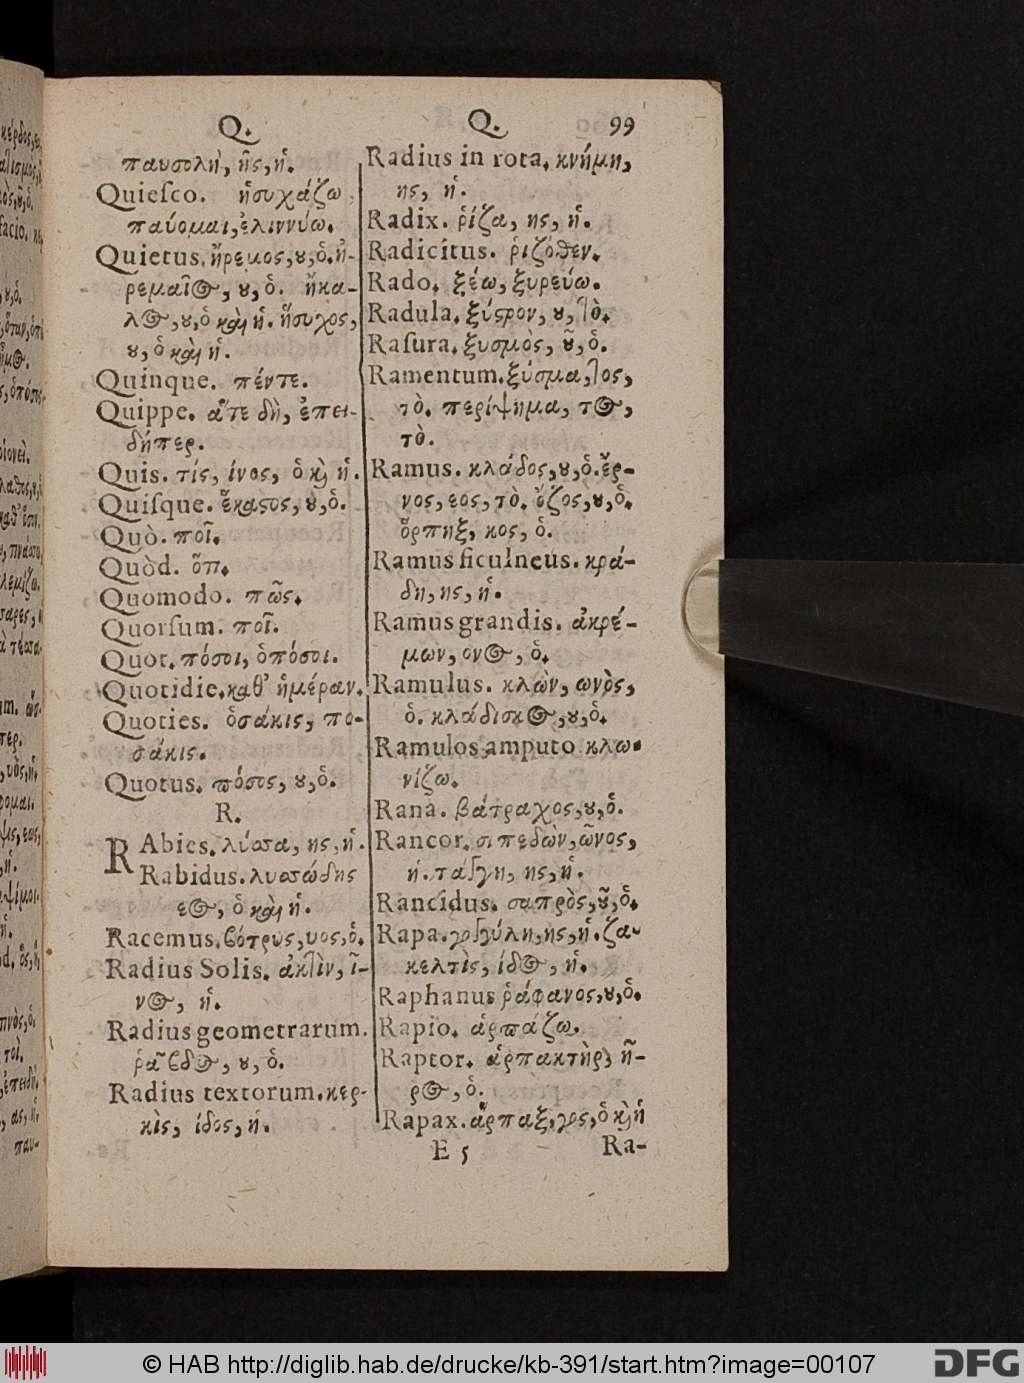 Q.
παυσολὴ, ῆς, ἡ.
Quieſco. ἡσυχάζω,
παύομαι, ἐλιννύω.
Quietus. ἤρεμος, ȣ, ὁ. ἠ-
ρεμαῖος, ȣ, ὁ. ἤκα-
λος, ȣ, ὁ καὶ ἡ. ἥσυχος,
ȣ, ὁ καὶ ἡ.
Quinque. πέντε.
Quippe. ἅτε δὴ, ἐπει-
δήπερ.
Quis. τίς, ίνος, ὁ κ̀ ἡ.
Quiſque. ἕκαϛος, ȣ, ὁ.
Quò. ποῖ.
Quòd. ὅπ.
Quomodo. πῶς.
Quorſum. ποῖ.
Quot. πόσοι, ὁπόσοι.
Quotidie. καθ' ἡμέραν.
Quoties. ὁσάκις, πο-
σάκις.
Quotus. πόσος, ȣ, ὁ.
R.
RAbies. λύσσα, ης, ἡ.
Rabidus. λυσσώδης
εος, ὁ καὶ ἡ.
Racemus. βότρυς, υος, ὁ.
Radius Solis. ἀκτὶν, ῖ-
νος, ἡ.
Radius geometrarum.
ῥάβδος, ȣ, ὁ.
Radius textorum. κερ-
κὶς, ίδος, ἡ.
Q. 99
Radius in rota. κνήμη,
ης, ἡ.
Radix. ῥίζα, ης, ἡ.
Radicitus. ῥιζόθεν.
Rado. ξέω, ξυρεύω.
Radula. ξύϛρον, ȣ, τὸ.
Raſura. ξυσμὸς, ȣ͂, ὁ.
Ramentum. ξύσμα, τος,
τὸ. περίψημα, τος,
τὸ.
Ramus. κλάδος, ȣ, ὁ. ἔρ-
νος, εος, τὸ. ὄζος, ȣ, ὁ.
ὅρπηξ, κος, ὁ.
Ramus ficulneus. κρά-
δη, ης, ἡ.
Ramus grandis. ἀκρέ-
μων, ονος, ὁ.
Ramulus. κλὼν, ωνὸς,
ὁ. κλάδισκος, ȣ, ὁ.
Ramulos amputo κλω-
νίζω.
Rana. βάτραχος, ȣ, ὁ.
Rancor. σιπεδὼν, ῶνος,
ἡ. τάγγη, ης, ἡ.
Rancidus. σαπρὸς, ȣ͂, ὁ.
Rapa. γογγύλη, ης, ἡ. ζα-
κελτὶς, ίδος, ἡ.
Raphanus ῥάφανος, ȣ, ὁ.
Rapio. ἁρπάζω.
Raptor. ἁρπακτὴρ, ῆ-
ρος, ὁ.
Rapax. ἅρπαξ, γος, ὁ κ̀ ἡ
E 5 Ra-
© HAB http://diglib.hab.de/drucke/kb-391/start.htm?image=00107
DFG